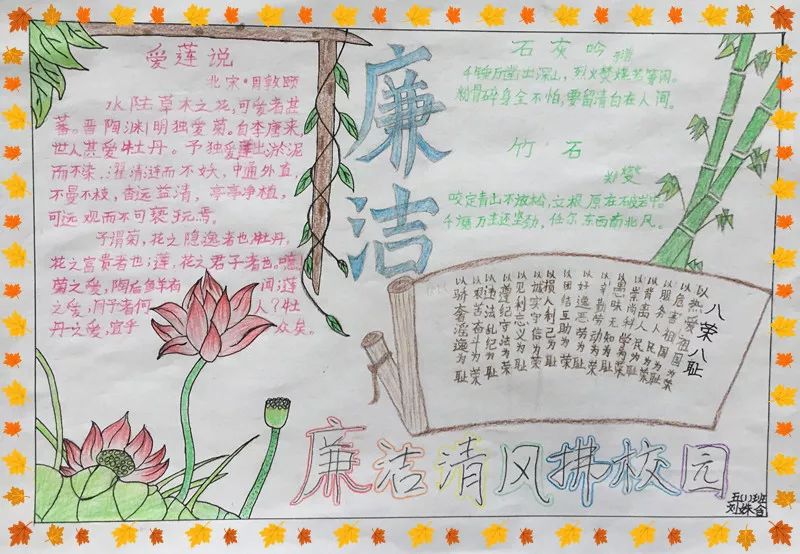 爱莲说
北宋·周敦颐
水陆草木之花,可爱者甚
蕃。晋陶渊明独爱菊。自李唐来
世人甚爱牡丹。予独爱莲出淤泥
而不染,濯清涟而不妖,中通外直,
不蔓不枝,香远益清,亭亭净植,
可远观而不可亵玩焉。
予谓菊,花之隐逸者也;牡丹,
花之富贵者也;莲,花之君子者也。噫!
菊之爱,陶后鲜有闻;莲
之爱,同予者何人?牡
丹之爱,宜乎众矣。
廉洁
石灰吟
千锤万凿出深山,烈火焚烧若等闲。
粉骨碎身全不怕,要留清白在人间。
竹石
郑燮
咬定青山不放松,立根原在破岩中。
千磨万击还坚劲,任尔东西南北风。
八荣八耻
以热爱祖国为荣
以危害祖国为耻
以服务人民为荣
以背离人民为耻
以崇尚科学为荣
以愚昧无知为耻
以辛勤劳动为荣
以好逸恶劳为耻
以团结互助为荣
以损人利己为耻
以诚实守信为荣
以见利忘义为耻
以遵纪守法为荣
以违法乱纪为耻
以艰苦奋斗为荣
以骄奢淫逸为耻
廉洁清风拂校园
五(1)班